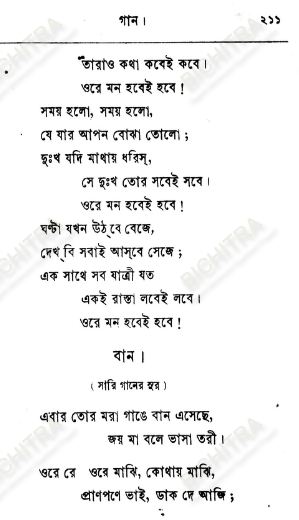 গান। ২১১
তারাও কথা কবেই কবে।
ওরে মন হবেই হবে!
সময় হলো, সময় হলো,
যে যার আপন বোঝা তোলো;
দুঃখ যদি মাথায় ধরিস্,
সে দুঃখ তোর সবেই সবে।
ওরে মন হবেই হবে!
ঘণ্টা যখন উঠ্‌বে বেজে,
দেখ্‌বি সবাই আস্‌বে সেজে;
এক সাথে সব যাত্রী যত
একই রাস্তা লবেই লবে।
ওরে মন হবেই হবে!
বান।
(সারি গানের সুর)
এবার তোর মরা গাঙে বান এসেছে,
জয় মা বলে ভাসা তরী।
ওরে রে ওরে মাঝি, কোথায় মাঝি,
প্রাণপণে ভাই, ডাক দে আজি;
BICHITRA